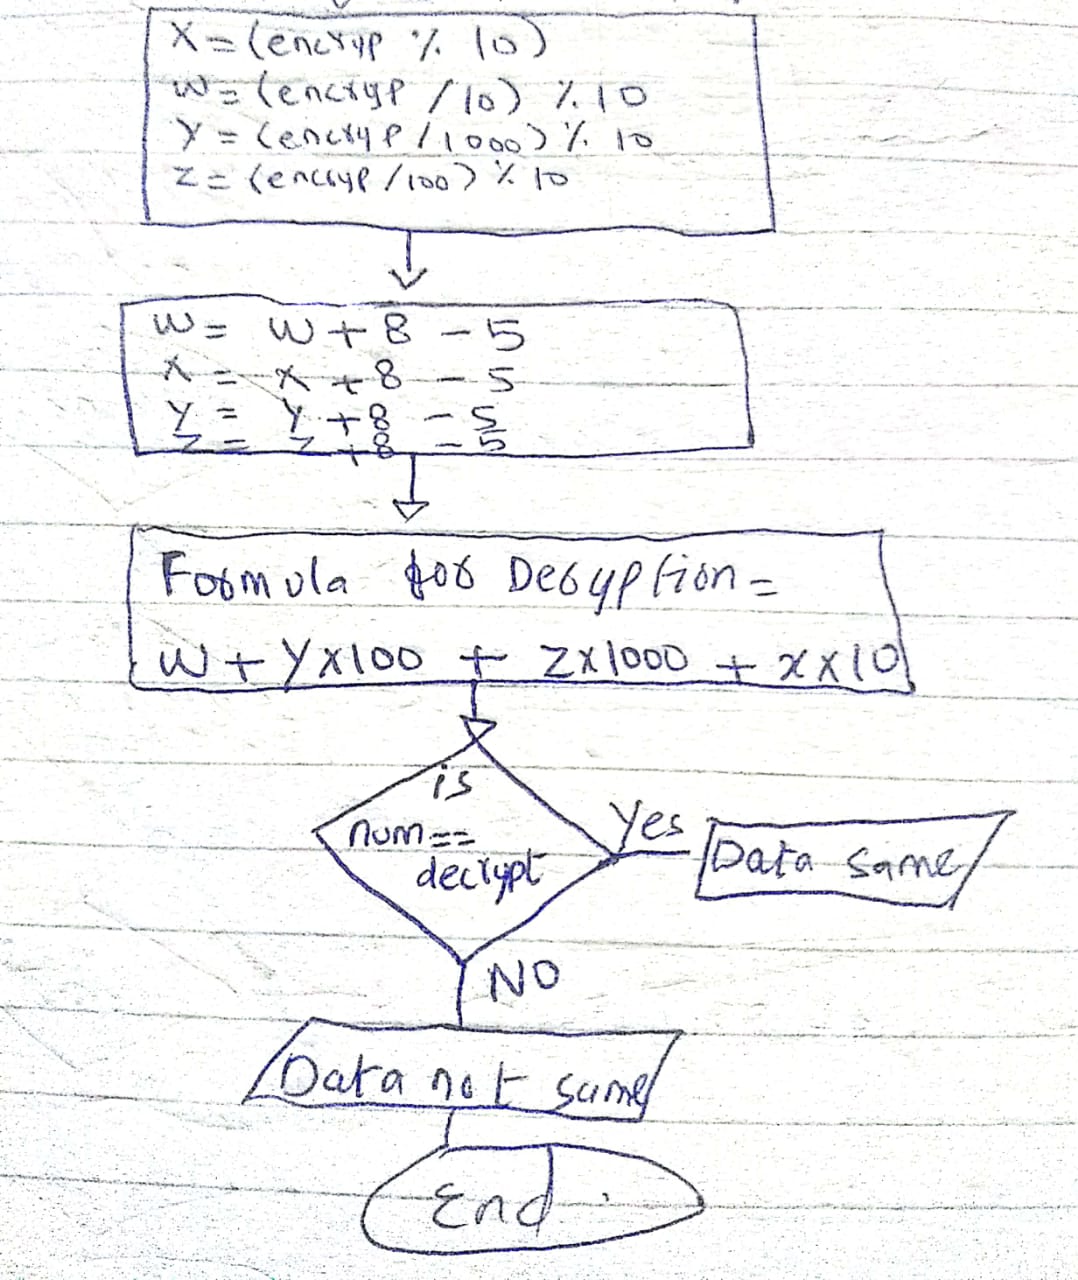 X = (encryp % 10)
w = (encryp / 10) % 10
Y = (encryp / 1000) % 10
Z = (encryp / 100) % 10
w = w + 8 - 5
X = X + 8 - 5
Y = Y + 8 - 5
Z = Z + 8 - 5
Formula for Decryption =
w + Y x 100 + Z x 1000 + x x 10
is
num ==
decrypt
Yes
Data same
NO
Data not same
End